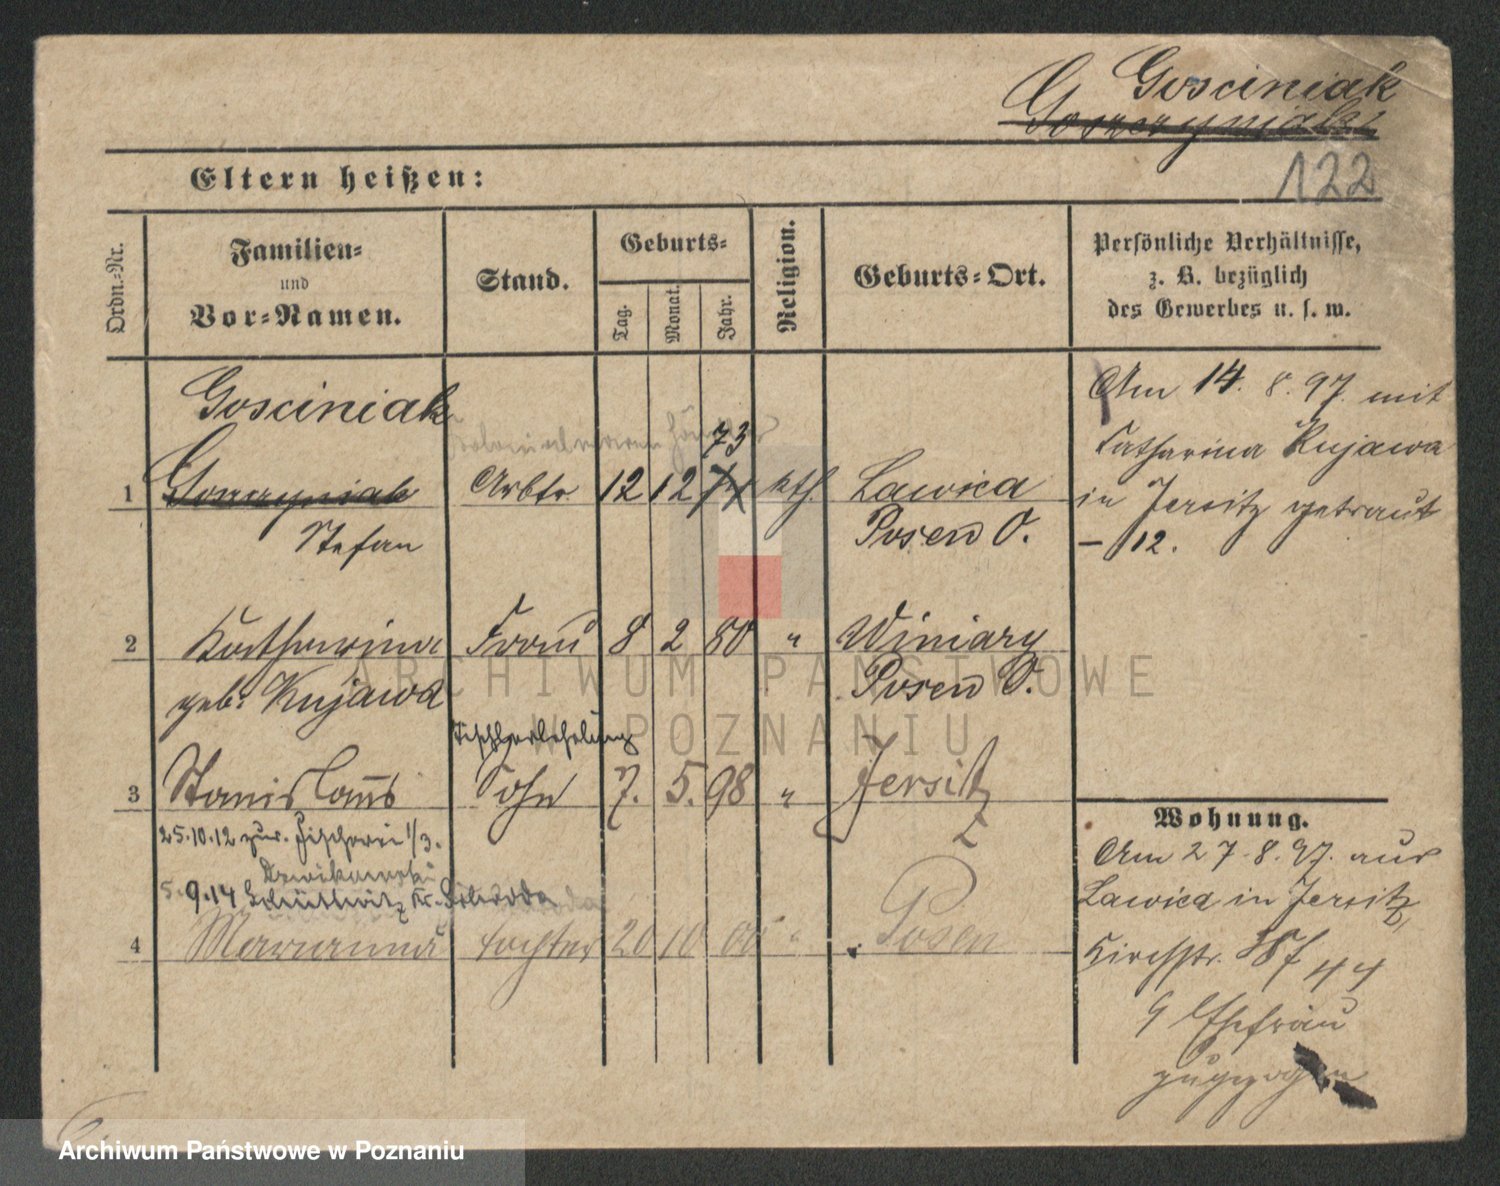 Gosciniak
122
Eltern heißen:
Ordn.-Nr.
Familien-
und
Vor-Namen.
Stand.
Geburts-
Tag.
Monat.
Jahr.
Religion.
Geburts-Ort.
Persönliche Verhältnisse,
z. B. bezüglich
des Gewerbes u. s. w.
Gosciniak
73
1 Arbtr. 12 12 kth. Lawica
Stefan Posen O.
Am 14. 8. 97. mit
Katharina Kujawa
in Jersitz getraut
– 12.
2 Katharina Frau 8 2 80 " Winiary
geb. Kujawa Posen O.
Tischlerlehrling
3 Stanislaus Sohn 7. 5. 98 " Jersitz
25.10.12 zur. 1/3.
5.9.14 Kr.
4 Marianna Tochter 20 10 00 " Posen
Wohnung.
Am 27.8.97. aus
Lawica in Jersitz,
Kirchstr.
Ehefrau
zugezogen
ARCHIWUM PAŃSTWOWE
W POZNANIU
Archiwum Państwowe w Poznaniu